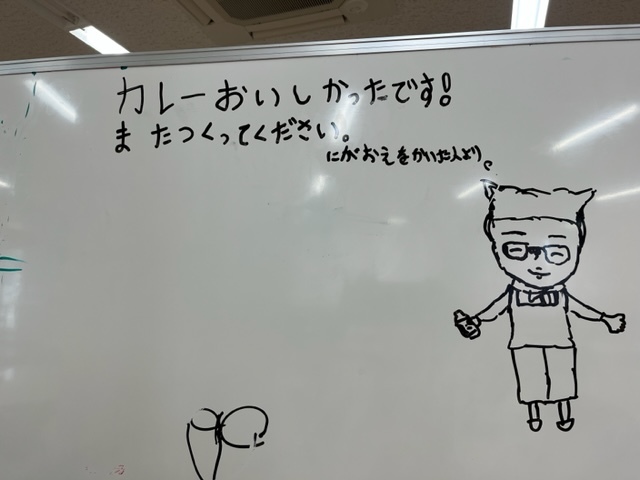 カレーおいしかったです!
またつくってください。
にがおえをかいた人より。